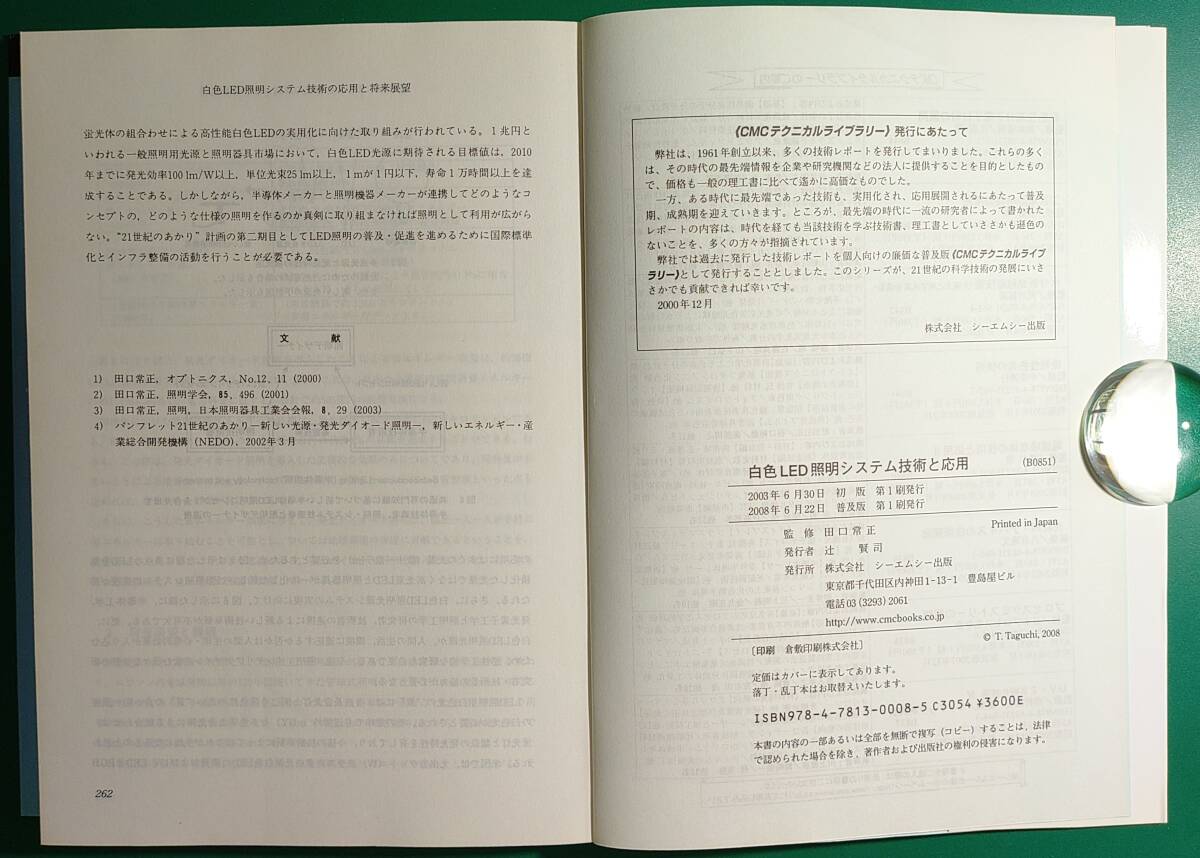 白色LED照明システム技術の応用と将来展望
蛍光体の組合わせによる高性能白色LEDの実用化に向けた取り組みが行われている。1兆円と
いわれる一般照明用光源と照明器具市場において，白色LED光源に期待される目標値は，2010
年までに発光効率100 lm/W以上，単位光束25 lm以上，1 lmが1円以下，寿命1万時間以上を達
成することである。しかしながら，半導体メーカーと照明機器メーカーが連携してどのようなコ
ンセプトの，どのような仕様の照明を作るのか真剣に取り組まなければ照明として利用が広がら
ない。"21世紀のあかり" 計画の第二期目としてLED照明の普及・促進を進めるために国際標準
化とインフラ整備の活動を行うことが必要である。
文　　献
1) 田口常正，オプトニクス，No.12，11 (2000)
2) 田口常正，照明学会，85，496 (2001)
3) 田口常正，照明，日本照明器具工業会会報，8，29 (2003)
4) パンフレット21世紀のあかり－新しい光源・発光ダイオード照明－，新しいエネルギー・産
業総合開発機構 (NEDO)，2002年3月
262
《CMCテクニカルライブラリー》発行にあたって
弊社は、1961年創立以来、多くの技術レポートを発行してまいりました。これらの多く
は、その時代の最先端情報を企業や研究機関などの法人に提供することを目的としたもの
で、価格も一般の理工書に比べて遙かに高価なものでした。
一方、ある時代に最先端であった技術も、実用化され、応用展開されるにあたって普及
期、成熟期を迎えていきます。ところが、最先端の時代に一流の研究者によって書かれた
レポートの内容は、時代を経ても当該技術を学ぶ技術書、理工書としていささかも遜色の
ないことを、多くの方々が指摘されています。
弊社では過去に発行した技術レポートを個人向けの廉価な普及版《CMCテクニカルライブ
ラリー》として発行することとしました。このシリーズが、21世紀の科学技術の発展にいさ
さかでも貢献できれば幸いです。
2000年12月
株式会社　シーエムシー出版
白色LED照明システム技術と応用 (B0851)
2003年 6月30日 初　版 第1刷発行
2008年 6月22日 普及版 第1刷発行
監　修 田口常正 Printed in Japan
発行者 辻　賢司
発行所 株式会社　シーエムシー出版
東京都千代田区内神田1-13-1　豊島屋ビル
電話03 (3293) 2061
http://www.cmcbooks.co.jp
〔印刷　倉敷印刷株式会社〕 © T. Taguchi, 2008
定価はカバーに表示してあります。
落丁・乱丁本はお取替えいたします。
ISBN978-4-7813-0008-5 C3054 ¥3600E
本書の内容の一部あるいは全部を無断で複写（コピー）することは、法律
で認められた場合を除き、著作者および出版社の権利の侵害になります。